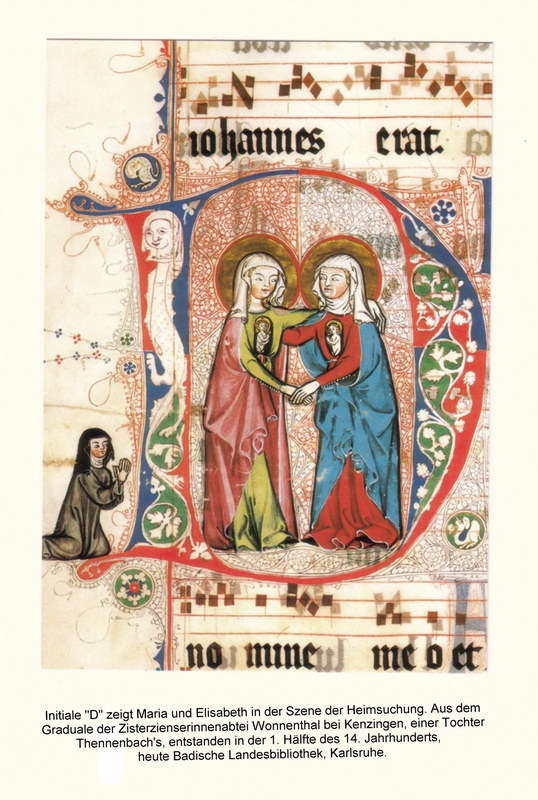 iohannes erat.
no mine me o et
Initiale "D" zeigt Maria und Elisabeth in der Szene der Heimsuchung. Aus dem
Graduale der Zisterzienserinnenabtei Wonnenthal bei Kenzingen, einer Tochter
Thennenbach's, entstanden in der 1. Hälfte des 14. Jahrhunderts,
heute Badische Landesbibliothek, Karlsruhe.